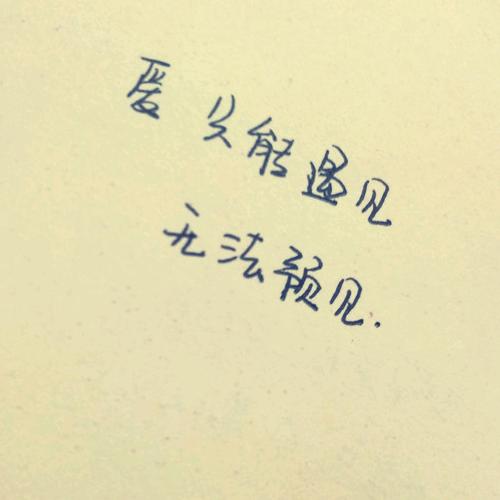 爱只能遇见
无法预见.